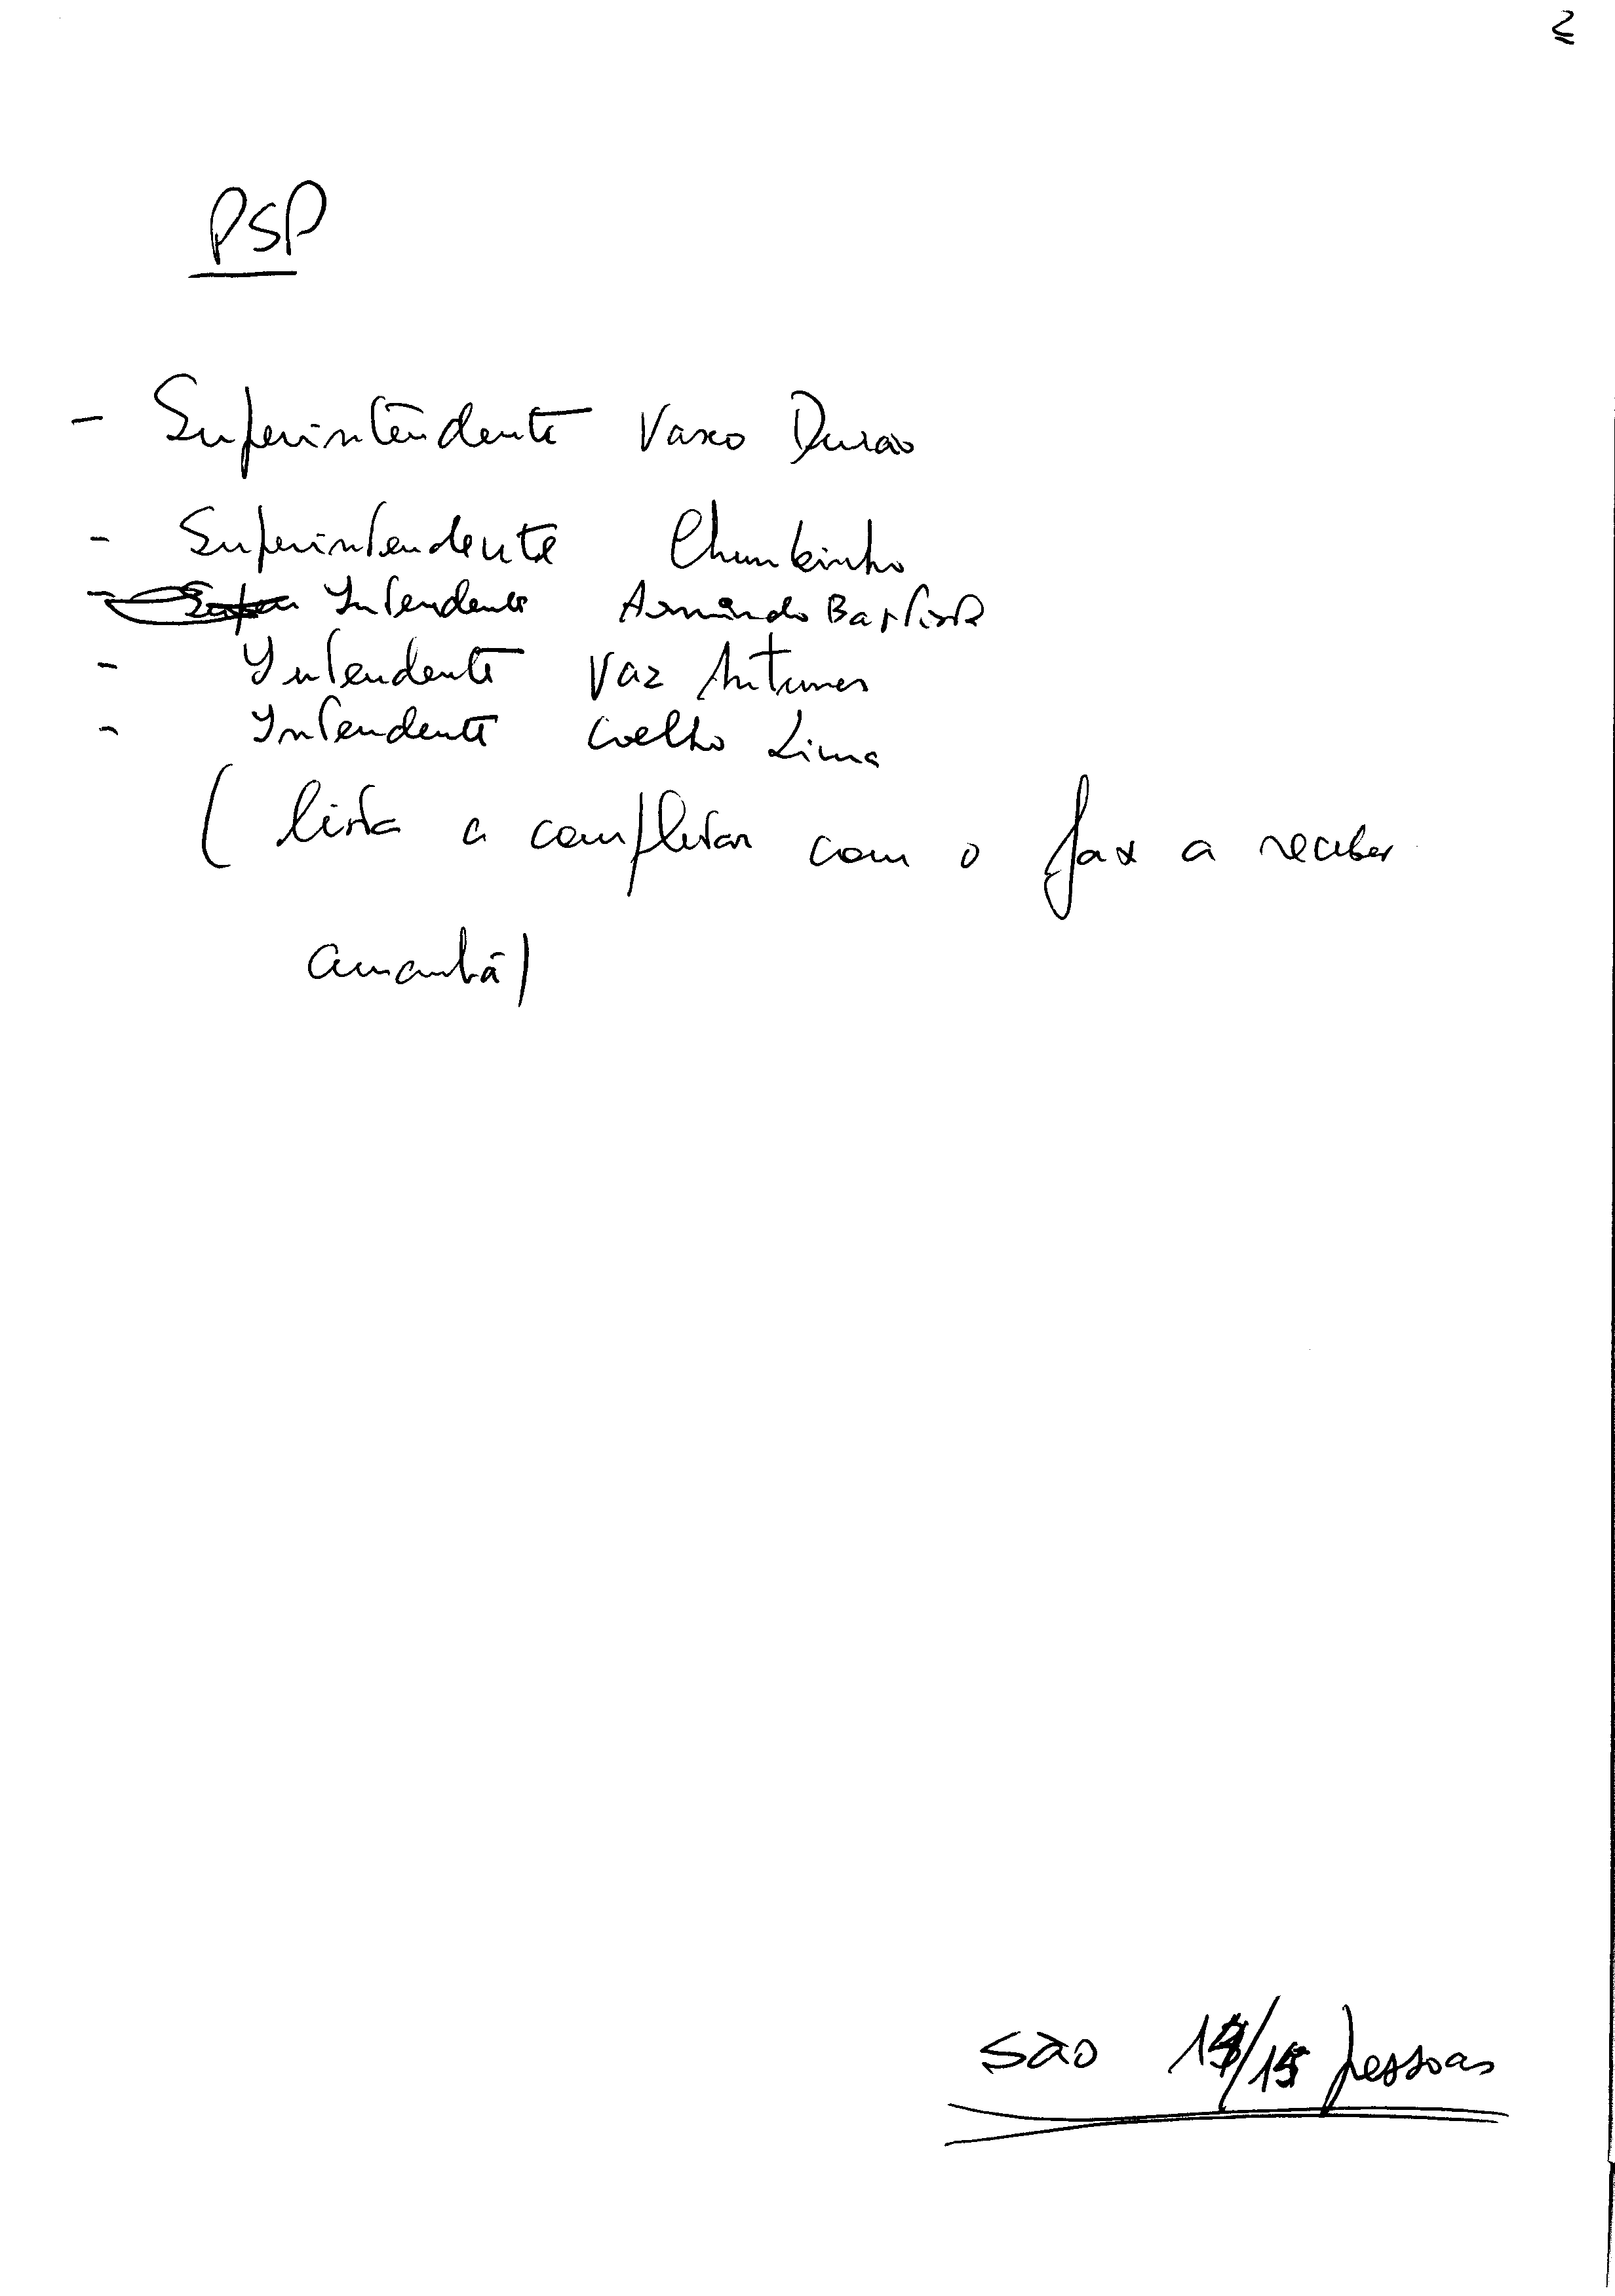 2
PSP
- Superintendente Vasco Durão
- Superintendente Chumbinho
- Intendente Armindo Baptista
- Intendente Vaz Antunes
- Intendente Coelho Lima
( lista a completar com o fax a receber
amanhã)
são 14/15 pessoas